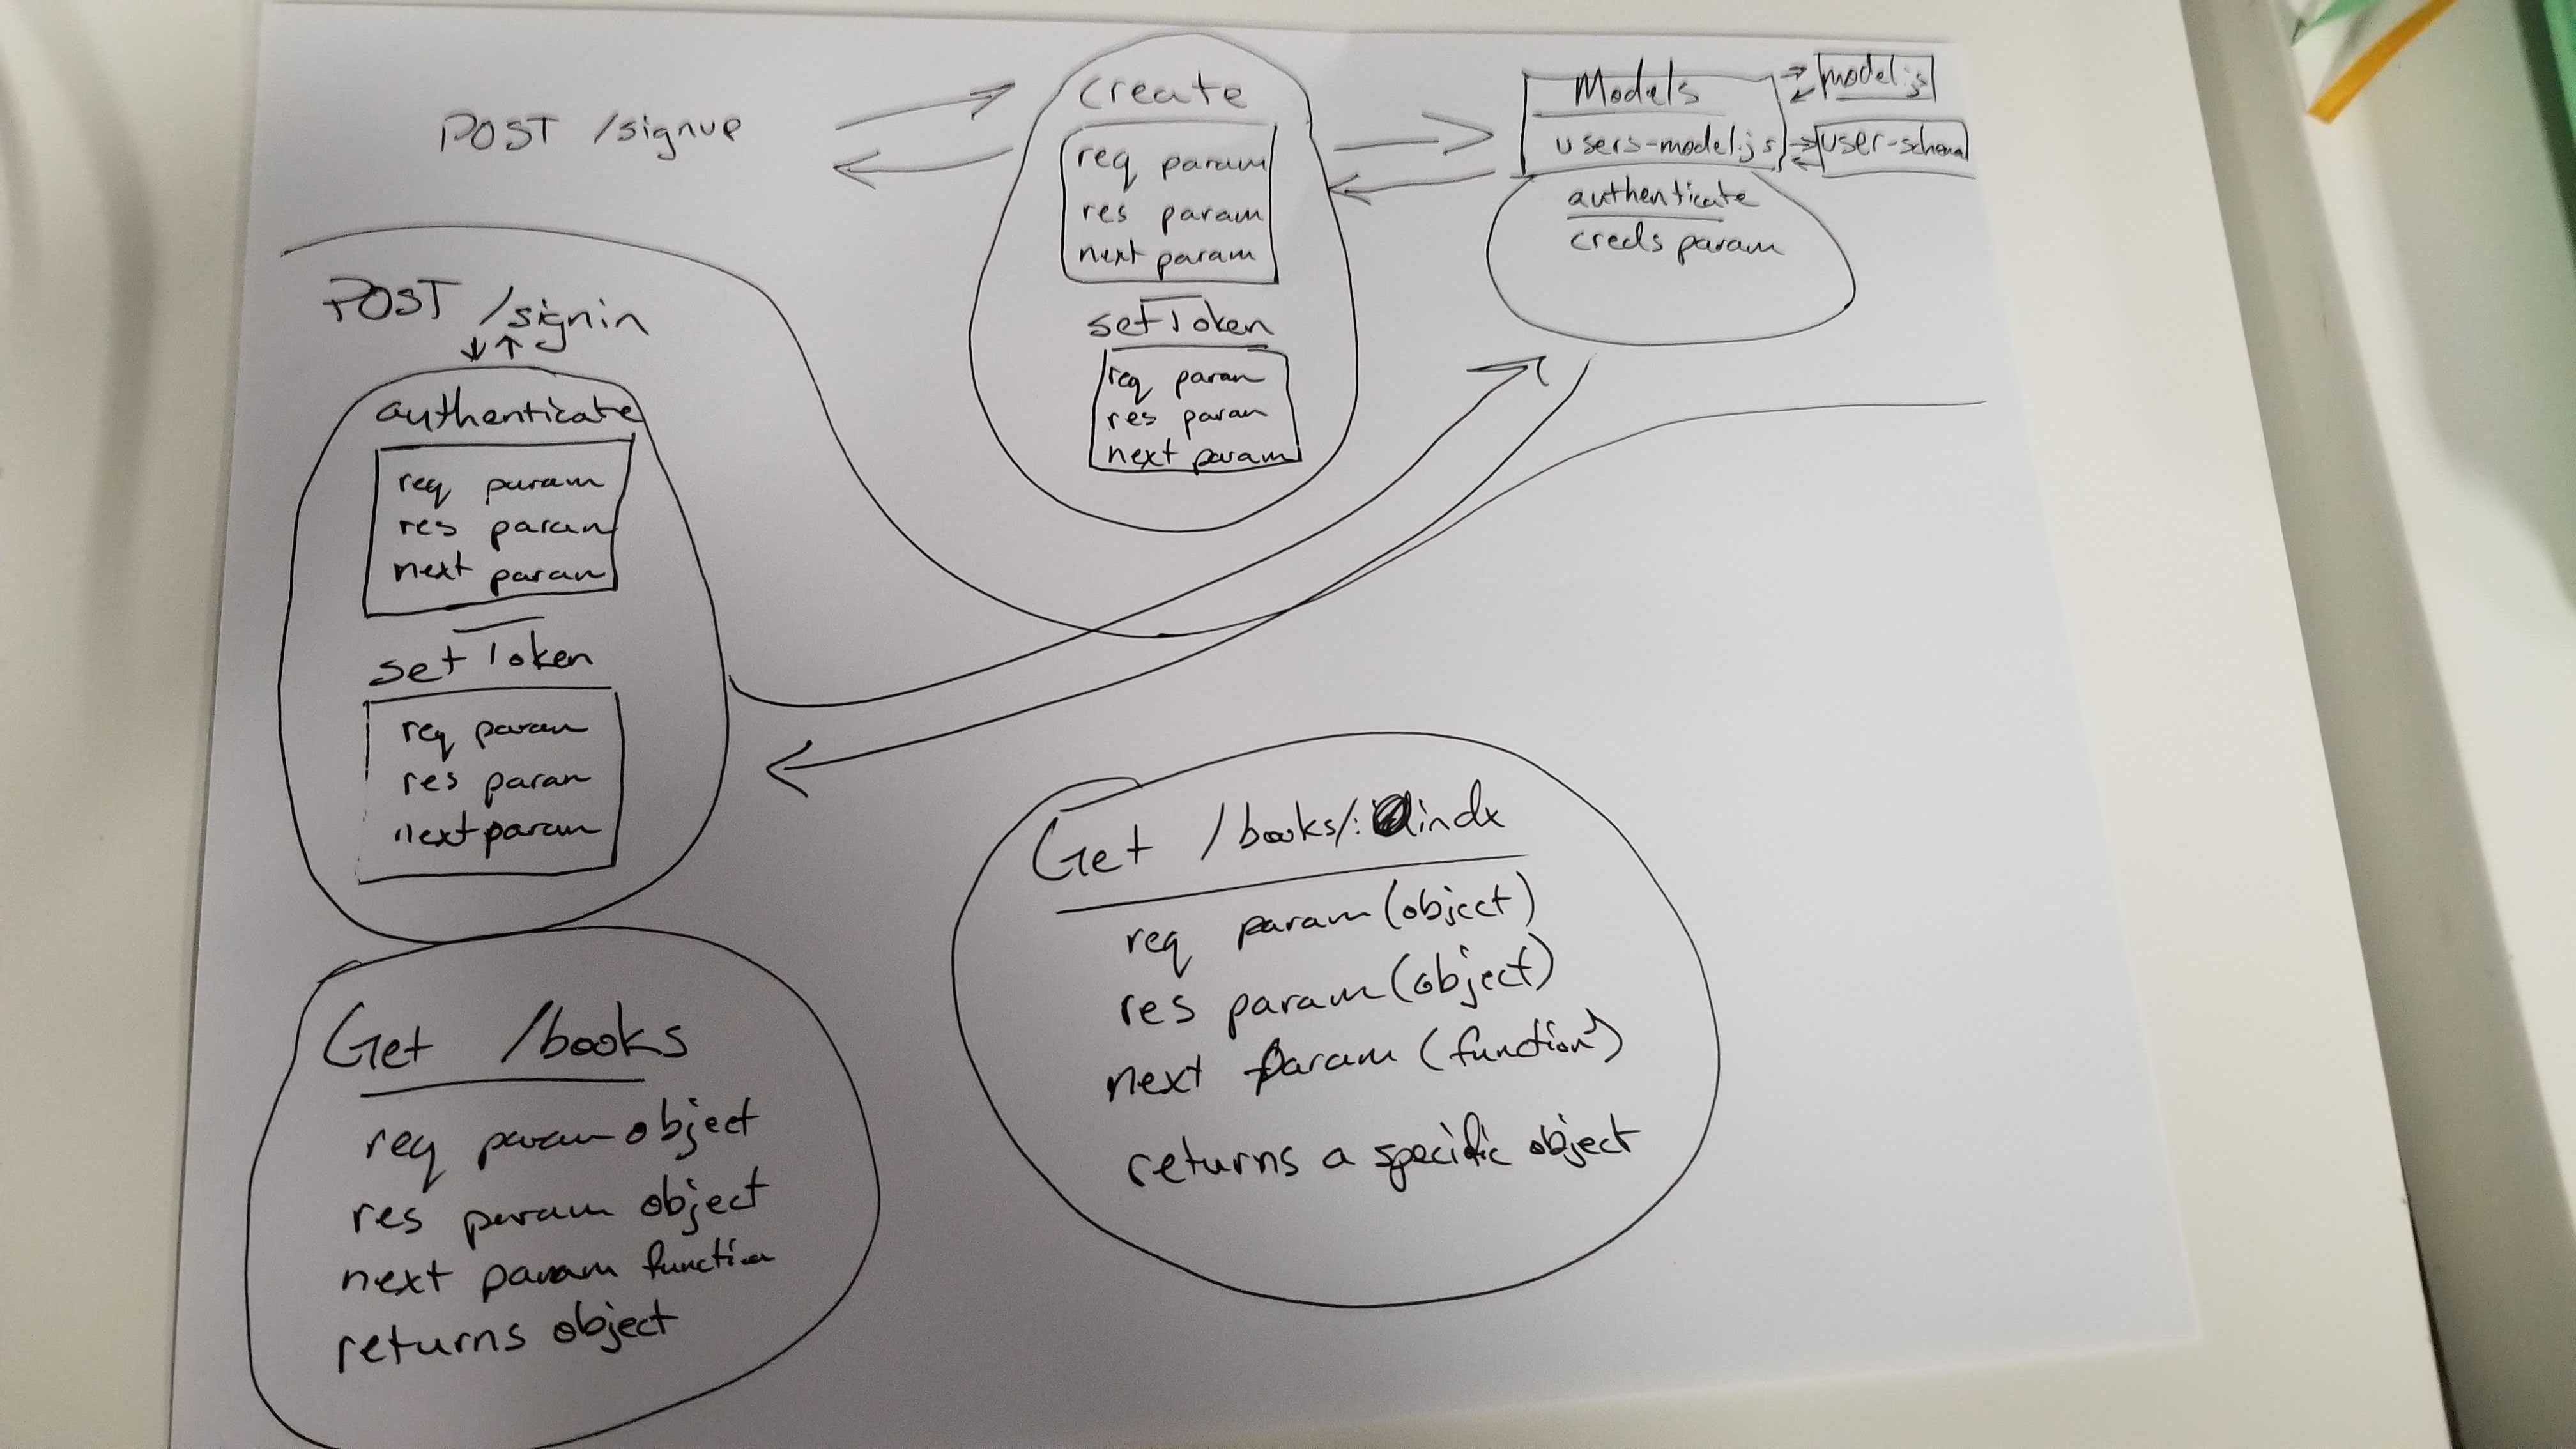 POST /signup
create
req param
res param
next param
setToken
req param
res param
next param
Models
users-model.js
model.js
user-schema
authenticate
creds param
POST /signin
authenticate
req param
res param
next param
set Token
req param
res param
next param
Get /books
req param object
res param object
next param function
returns object
Get /books/: indx
req param (object)
res param (object)
next param (function)
returns a specific object